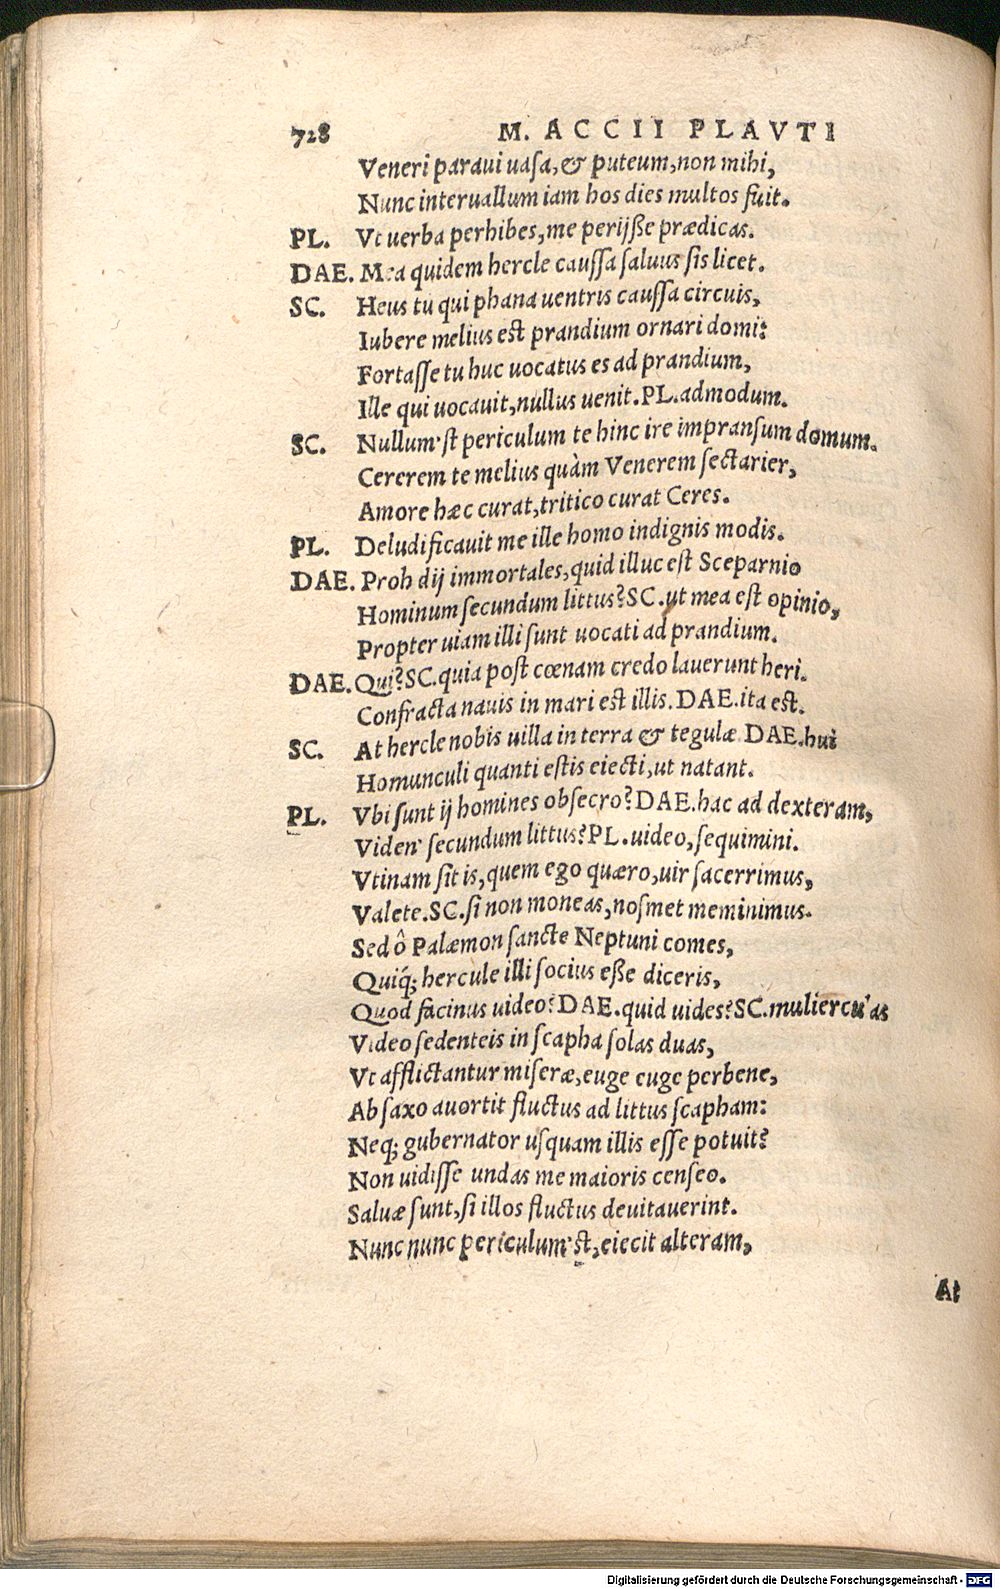 728 M. ACCII PLAVTI
Veneri paraui uasa, & puteum, non mihi,
Nunc interuallum iam hos dies multos fuit.
PL. Vt uerba perhibes, me perijsse prædicas.
DAE. Mea quidem hercle caussa saluus sis licet.
SC. Heus tu qui phana uentris caussa circuis,
Iubere melius est prandium ornari domi:
Fortasse tu huc uocatus es ad prandium,
Ille qui uocauit, nullus uenit. PL. admodum.
SC. Nullum'st periculum te hinc ire impransum domum.
Cererem te melius quàm Venerem sectarier,
Amore hæc curat, tritico curat Ceres.
PL. Deludificauit me ille homo indignis modis.
DAE. Proh dij immortales, quid illuc est Sceparnio
Hominum secundum littus? SC. ut mea est opinio,
Propter uiam illi sunt uocati ad prandium.
DAE. Qui? SC. quia post cœnam credo lauerunt heri.
Confracta nauis in mari est illis. DAE. ita est.
SC. At hercle nobis uilla in terra & tegulæ DAE. hui
Homunculi quanti estis eiecti, ut natant.
PL. Vbi sunt ij homines obsecro? DAE. hac ad dexteram,
Viden' secundum littus? PL. uideo, sequimini.
Vtinam sit is, quem ego quæro, uir sacerrimus,
Valete. SC. si non moneas, nosmet meminimus.
Sed ô Palæmon sancte Neptuni comes,
Quiq́; hercule illi socius esse diceris,
Quod facinus uideo? DAE. quid uides? SC. mulierculas
Video sedenteis in scapha solas duas,
Vt afflictantur miseræ, euge euge perbene,
Ab saxo auortit fluctus ad littus scapham:
Neq; gubernator usquam illis esse potuit?
Non uidisse undas me maioris censeo.
Saluæ sunt, si illos fluctus deuitauerint.
Nunc nunc periculum'st, eiecit alteram,
At
Digitalisierung gefördert durch die Deutsche Forschungsgemeinschaft - DFG